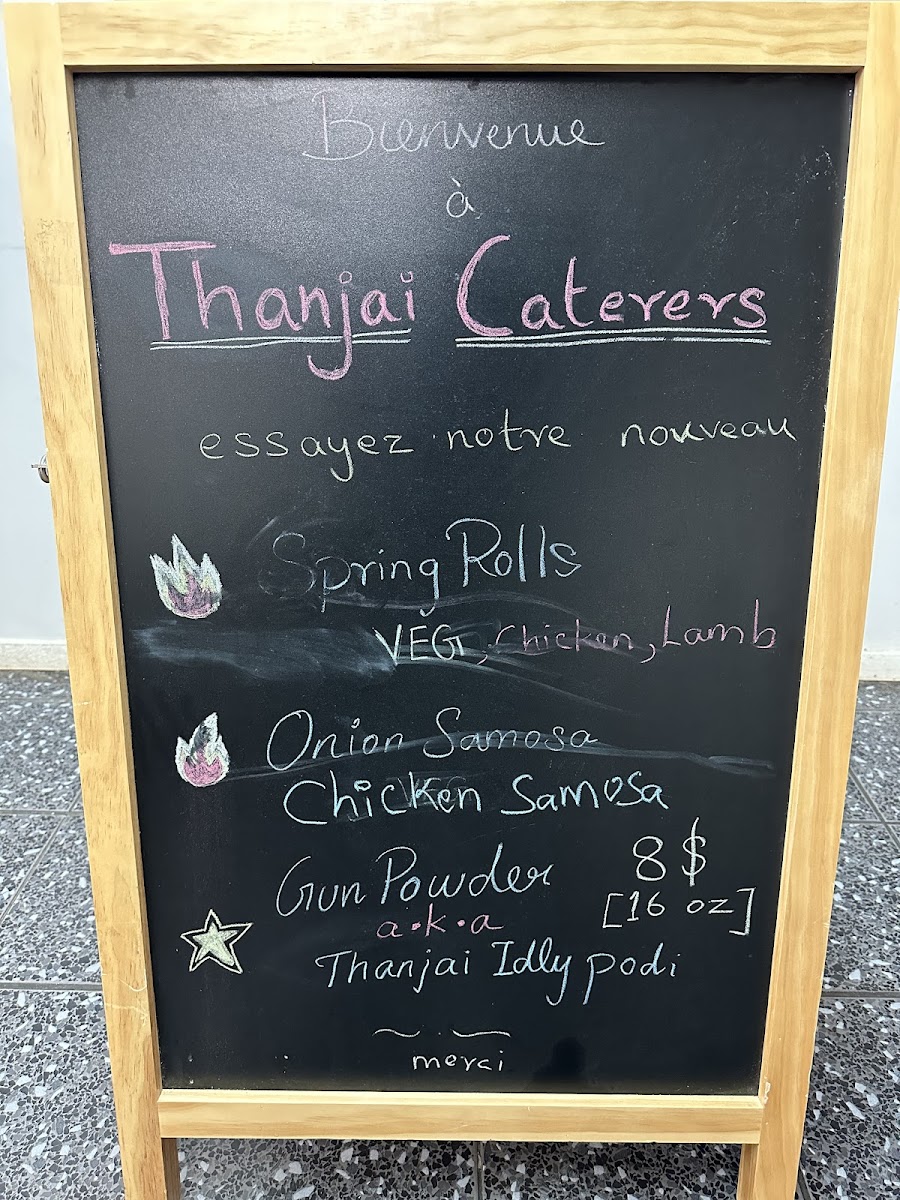 Bienvenue
à
Thanjai Caterers
essayez notre nouveau
Spring Rolls
VEG, Chicken, Lamb
Onion Samosa
Chicken Samosa
Gun Powder 8$
a.k.a [16 oz]
Thanjai Idly podi
merci